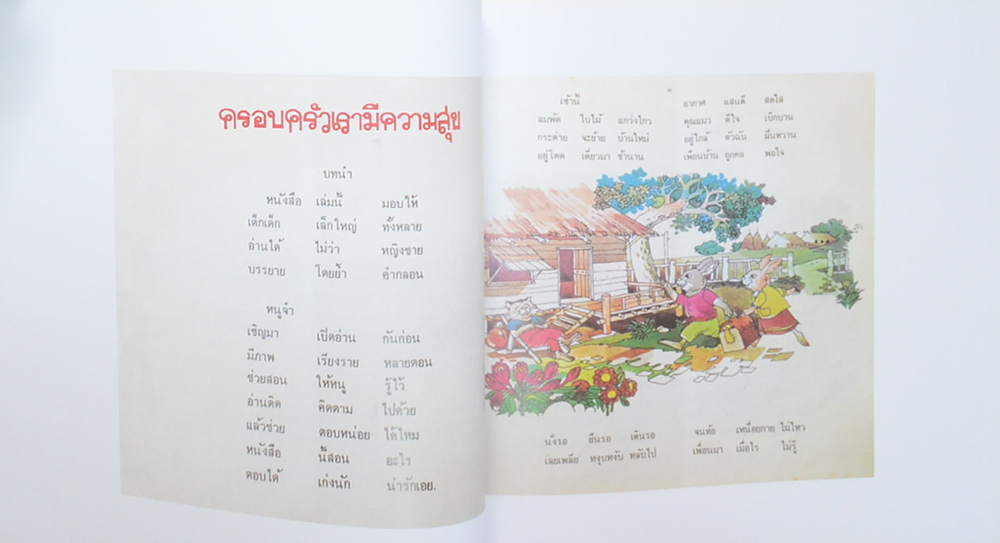 ครอบครัวเรามีความสุข
บทนำ
หนังสือ เล่มนี้ มอบให้
เด็กเด็ก เล็กใหญ่ ทั้งหลาย
อ่านได้ ไม่ว่า หญิงชาย
บรรยาย โดยย้ำ คำกลอน
หนูจ๋า
เชิญมา เปิดอ่าน กันก่อน
มีภาพ เรียงราย หลายตอน
ช่วยสอน ให้หนู รู้ไว้
อ่านติด คิดตาม ไปด้วย
แล้วช่วย ตอบหน่อย ได้ไหม
หนังสือ นี้สอน อะไร
ตอบได้ เก่งนัก น่ารักเอย.
เช้านี้ อากาศ แสนดี สดใส
ลมพัด ใบไม้ แกว่งไกว คุณแมว ดีใจ เบิกบาน
กระต่าย จะย้าย บ้านใหม่ อยู่ใกล้ ตัวฉัน ชื่นหวาน
อยู่โดด เดี่ยวมา ช้านาน เพื่อนบ้าน ถูกคอ พอใจ
นั่งรอ ยืนรอ เดินรอ จนท้อ เหนื่อยกาย ไม่ไหว
เลยเพลีย หงุบหงับ หลับไป เพื่อนมา เมื่อไร ไม่รู้